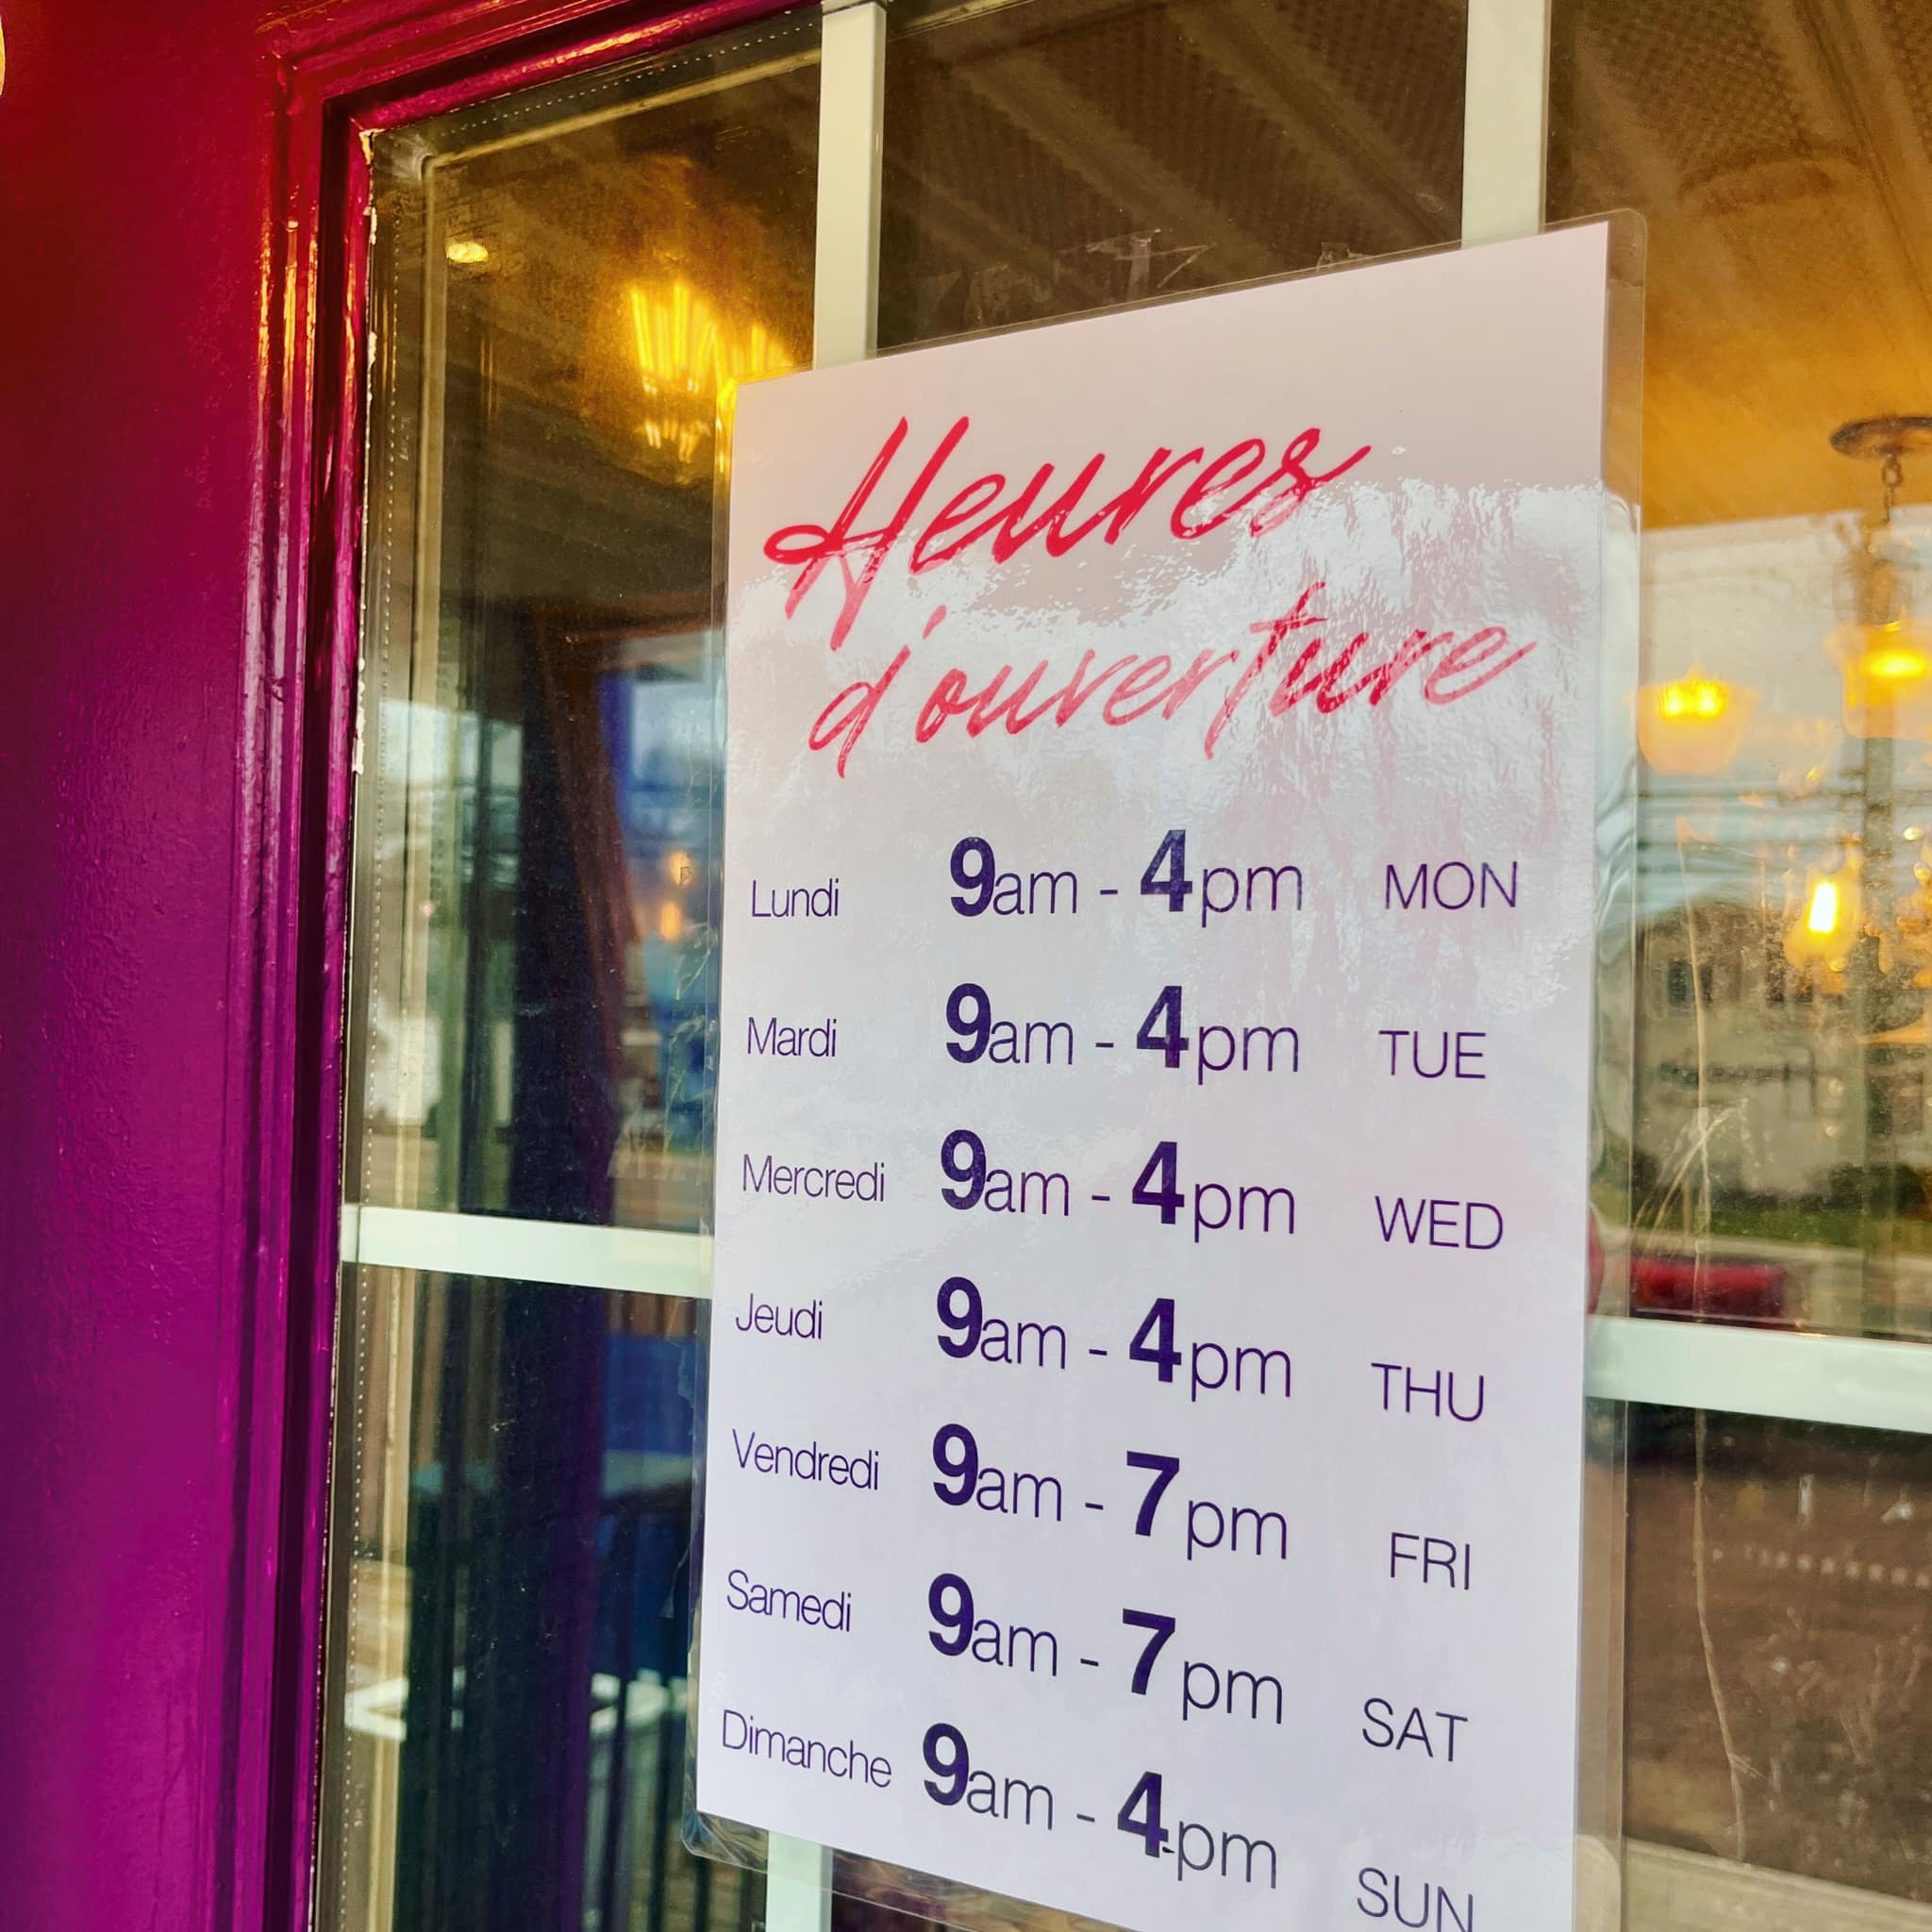 Heures
d'ouverture
Lundi 9am - 4pm MON
Mardi 9am - 4pm TUE
Mercredi 9am - 4pm WED
Jeudi 9am - 4pm THU
Vendredi 9am - 7pm FRI
Samedi 9am - 7pm SAT
Dimanche 9am - 4pm SUN